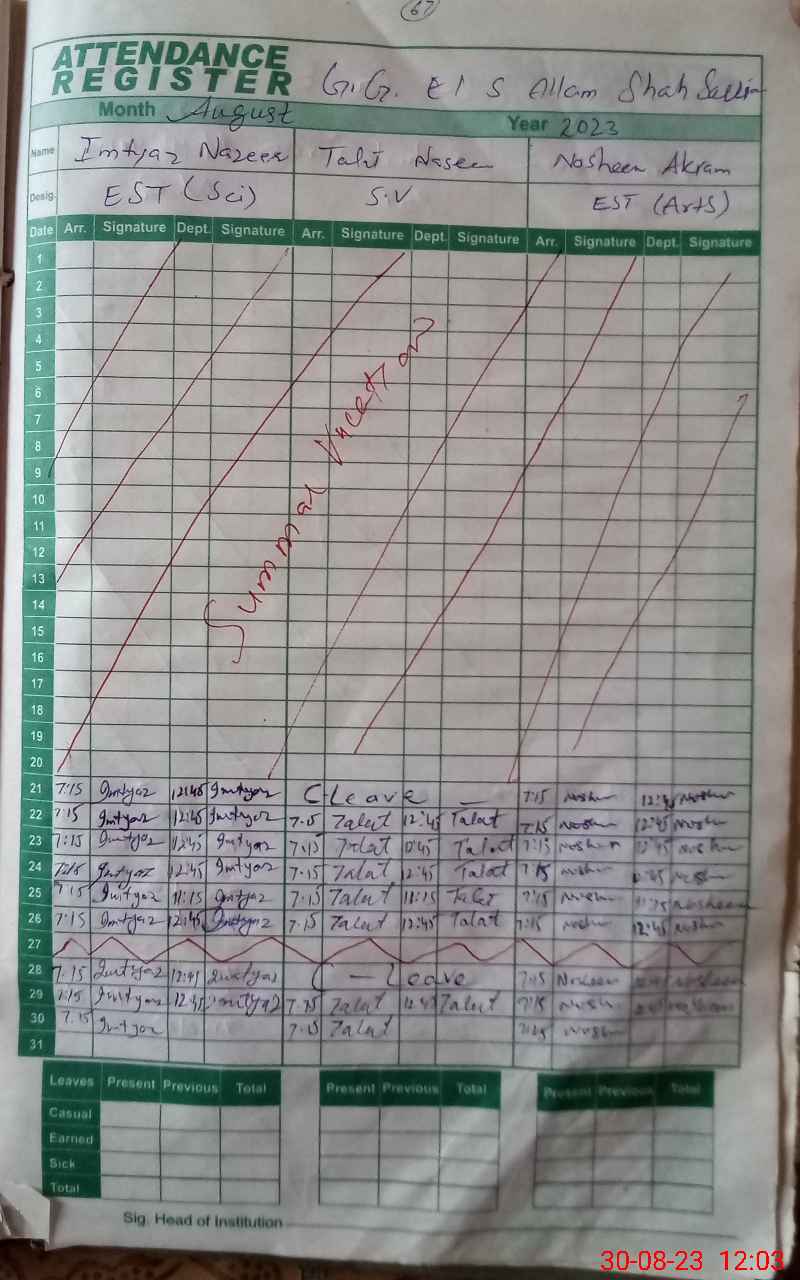 67
ATTENDANCE
REGISTER G.G. E/S Allam Shah
Month August Year 2023
Name Imtyaz Nazeer Talat Naseem Nosheen Akram
Desig. EST (Sci) S.V EST (Arts)
Date Arr. Signature Dept. Signature Arr. Signature Dept. Signature Arr. Signature Dept. Signature
1
2
3
4
5
6
7
8
9
10
11
12
13
14
15
16
17
18
19
20
Summar Vacation
21 7:15 Imtyaz 12:45 Imtyaz C-Leave 7:15 Noshen Noshen
22 7:15 Imtyaz 12:45 Imtyaz 7.15 Talat 12:45 Talat 7:15 Noshen 12:45 Noshen
23 7:15 Imtyaz 12:45 Imtyaz 7.15 Talat 12:45 Talat 7:15 Noshen 12:45 Noshen
24 7:15 Imtyaz 12:45 Imtyaz 7.15 Talat 12:45 Talat 7:15 Noshen 12:45 Noshen
25 7:15 Imtyaz 11:15 Imtyaz 7.15 Talat 11:15 Talat 7:15 Noshen 11:15 Nosheen
26 7:15 Imtyaz 12:45 Imtyaz 7.15 Talat 12:45 Talat 7:15 Noshen 12:45 Noshen
27
28 7.15 Imtyaz 12:45 Imtyaz C-Leave 7:15 Nosheen Nosheen
29 7:15 Imtyaz 12:45 Imtyaz 7.15 Talat 12:45 Talat 7:15 Noshen
30 7.15 Imtyaz 7.15 Talat 7:15 Noshen
31
Leaves Present Previous Total Present Previous Total Present Previous Total
Casual
Earned
Sick
Total
Sig. Head of Institution
30-08-23 12:03